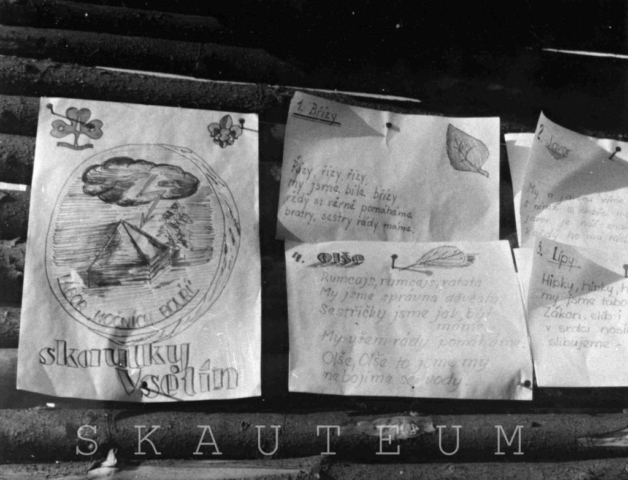 TÁBOR NOČNÍCH BOUŘÍ
skautky
Vsetín
1. Břízy
Řízy, řízy, řízy
my jsme bílé břízy
rády si věrně pomáháme
bratry, sestry rády máme.
4. Olše
Rumcajs, rumcajs, ratata
My jsme správná děvčata,
Sestřičky jsme jak být
máme
My všem rády pomáháme.
Olše, Olše to jsme my
nebojíme se vody
2.
My
3. Lípy
Hipky, hipky, h
my jsme tábo
Zákon, slib
v srdci nosí
slibujeme -
SKAUTEUM